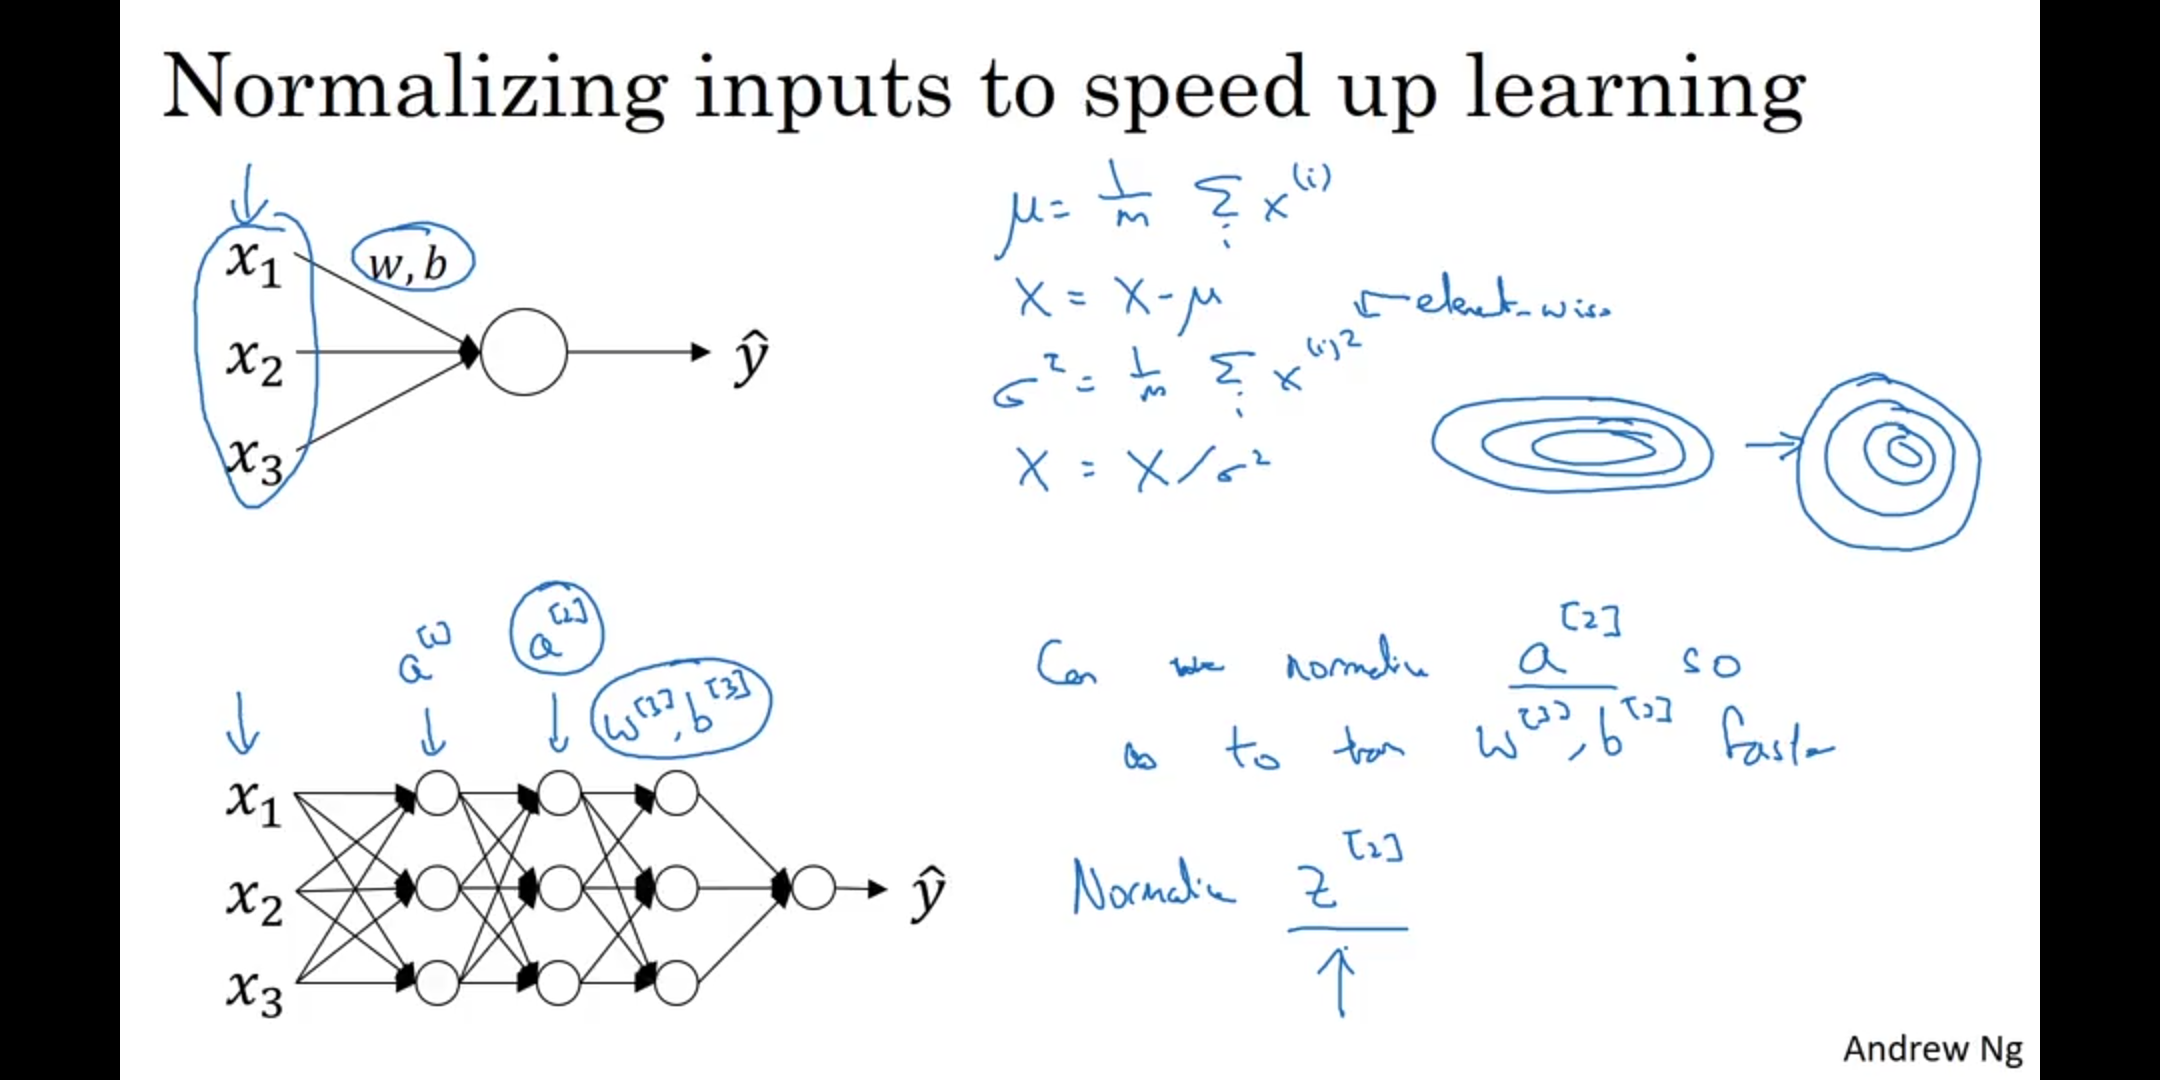 Normalizing inputs to speed up learning
x₁
x₂
x₃
w, b
ŷ
μ = 1/m Σᵢ x⁽ⁱ⁾
X = X - μ
← element-wise
σ² = 1/m Σᵢ x⁽ⁱ⁾²
X = X / σ²
a[1]
a[2]
w[3], b[3]
x₁
x₂
x₃
ŷ
Can we normalize a[2] so
as to train w[3], b[3] faster
Normalize z[2]
Andrew Ng